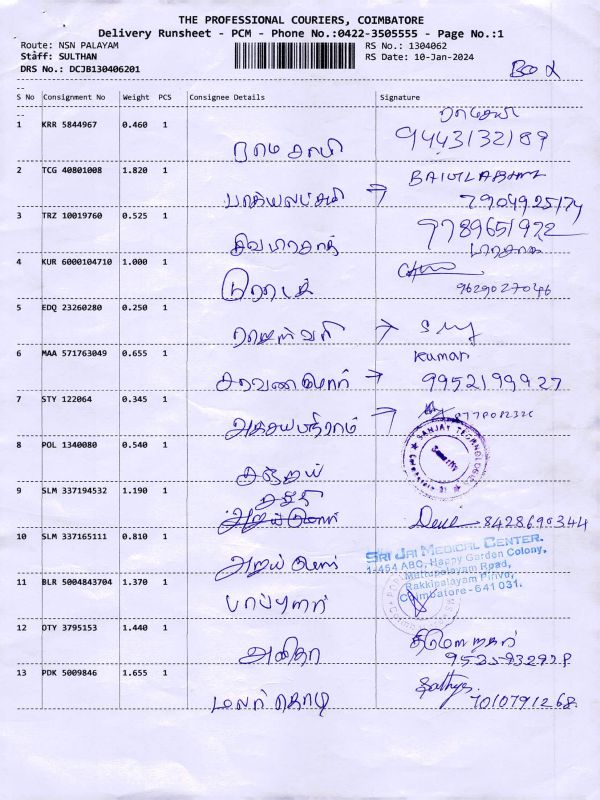 THE PROFESSIONAL COURIERS, COIMBATORE
Delivery Runsheet - PCM - Phone No.:0422-3505555 - Page No.:1
Route: NSN PALAYAM RS No.: 1304062
Staff: SULTHAN RS Date: 10-Jan-2024
DRS No.: DCJB130406201
S No Consignment No Weight PCS Consignee Details Signature
1 KRR 5844967 0.460 1
9443132189
2 TCG 40801008 1.820 1
பாக்யலட்சுமி → 7904925174
3 TRZ 10019760 0.525 1 9789651972
சிவபிரகாஷ்
4 KUR 6000104710 1.000 1
9629027046
5 EDQ 23260280 0.250 1
ராஜேஸ்வரி →
6 MAA 571763049 0.655 1 Kumar
சரவணகுமார் → 9952199927
7 STY 122064 0.345 1
→
SANJAY TECHNOLOGIES
8 POL 1340080 0.540 1
சஞ்சய்
9 SLM 337194532 1.190 1
8428690344
10 SLM 337165111 0.810 1 SRI JAI MEDICAL CENTER.
1-454 ABC, Happy Garden Colony,
அஜய் குமார் Mathupalayam Road,
11 BLR 5004843704 1.370 1 Rakkipalayam Pirivo,
Coimbatore - 641 031.
12 OTY 3795153 1.440 1
அனிதா
13 PDK 5009846 1.655 1 Sathya
மலர் கொடி 7010791268